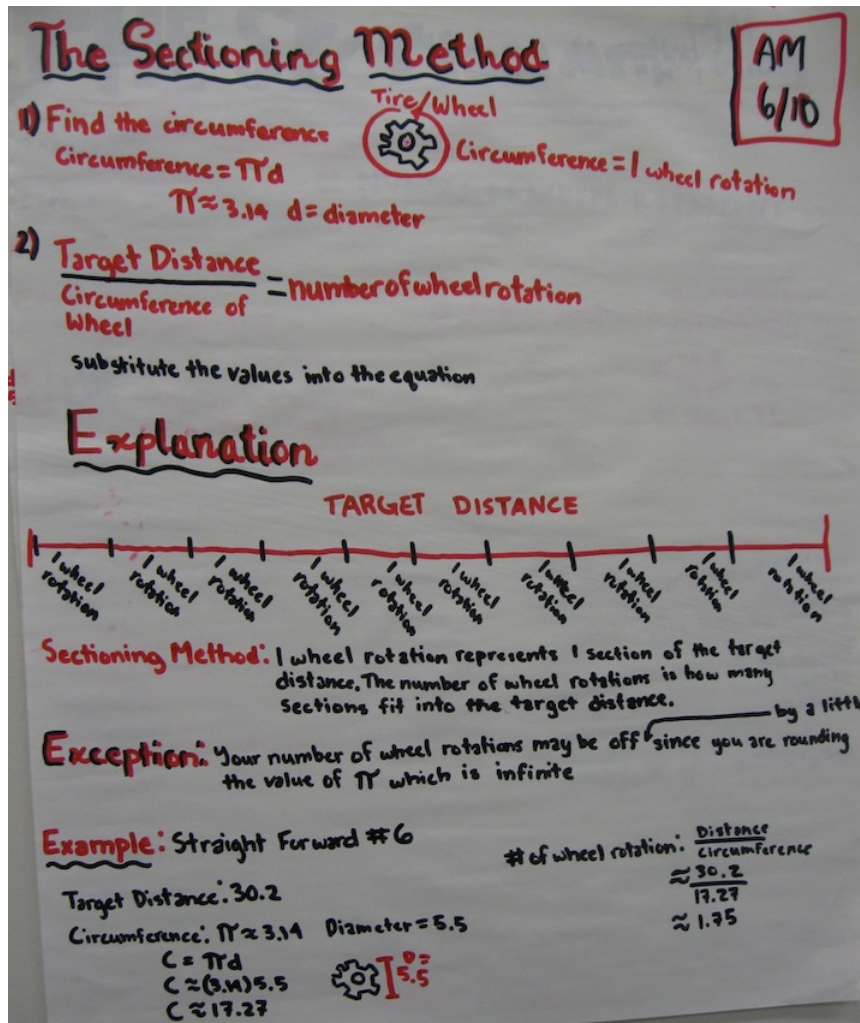 The Sectioning Method
AM
6/10
1) Find the circumference
Circumference = πd
π ≈ 3.14 d = diameter
Tire/Wheel
Circumference = 1 wheel rotation
2) Target Distance
Circumference of
Wheel
= number of wheel rotation
substitute the values into the equation
Explanation
TARGET DISTANCE
1 wheel
rotation
1 wheel
rotation
1 wheel
rotation
1 wheel
rotation
1 wheel
rotation
1 wheel
rotation
1 wheel
rotation
1 wheel
rotation
1 wheel
rotation
1 wheel
rotation
Sectioning Method: 1 wheel rotation represents 1 section of the target
distance. The number of wheel rotations is how many
sections fit into the target distance.
by a littl
Exception: Your number of wheel rotations may be off since you are rounding
the value of π which is infinite
Example: Straight Forward #6
Target Distance: 30.2
Circumference: π ≈ 3.14 Diameter = 5.5
C = πd
C ≈ (3.14)5.5
C ≈ 17.27
D =
5.5
# of wheel rotation: Distance
Circumference
≈ 30.2
17.27
≈ 1.75